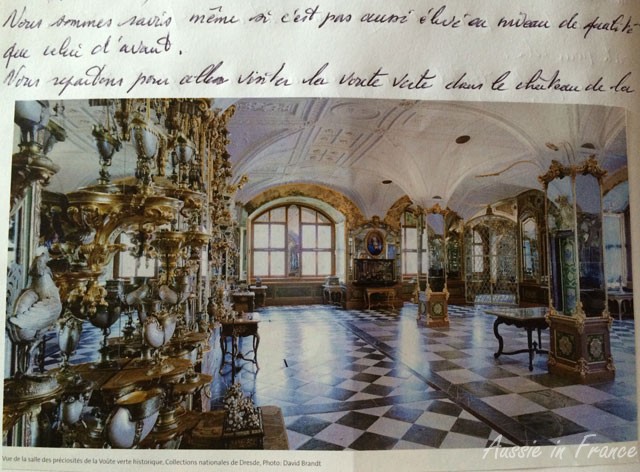 Nous sommes ravis même si c'est pas aussi élevé au niveau de qualité
que celui d'avant.
Nous repartons pour aller visiter la voute verte dans le château de la
Vue de la salle des préciosités de la Voûte verte historique, Collections nationales de Dresde, Photo: David Brandt
Aussie in France